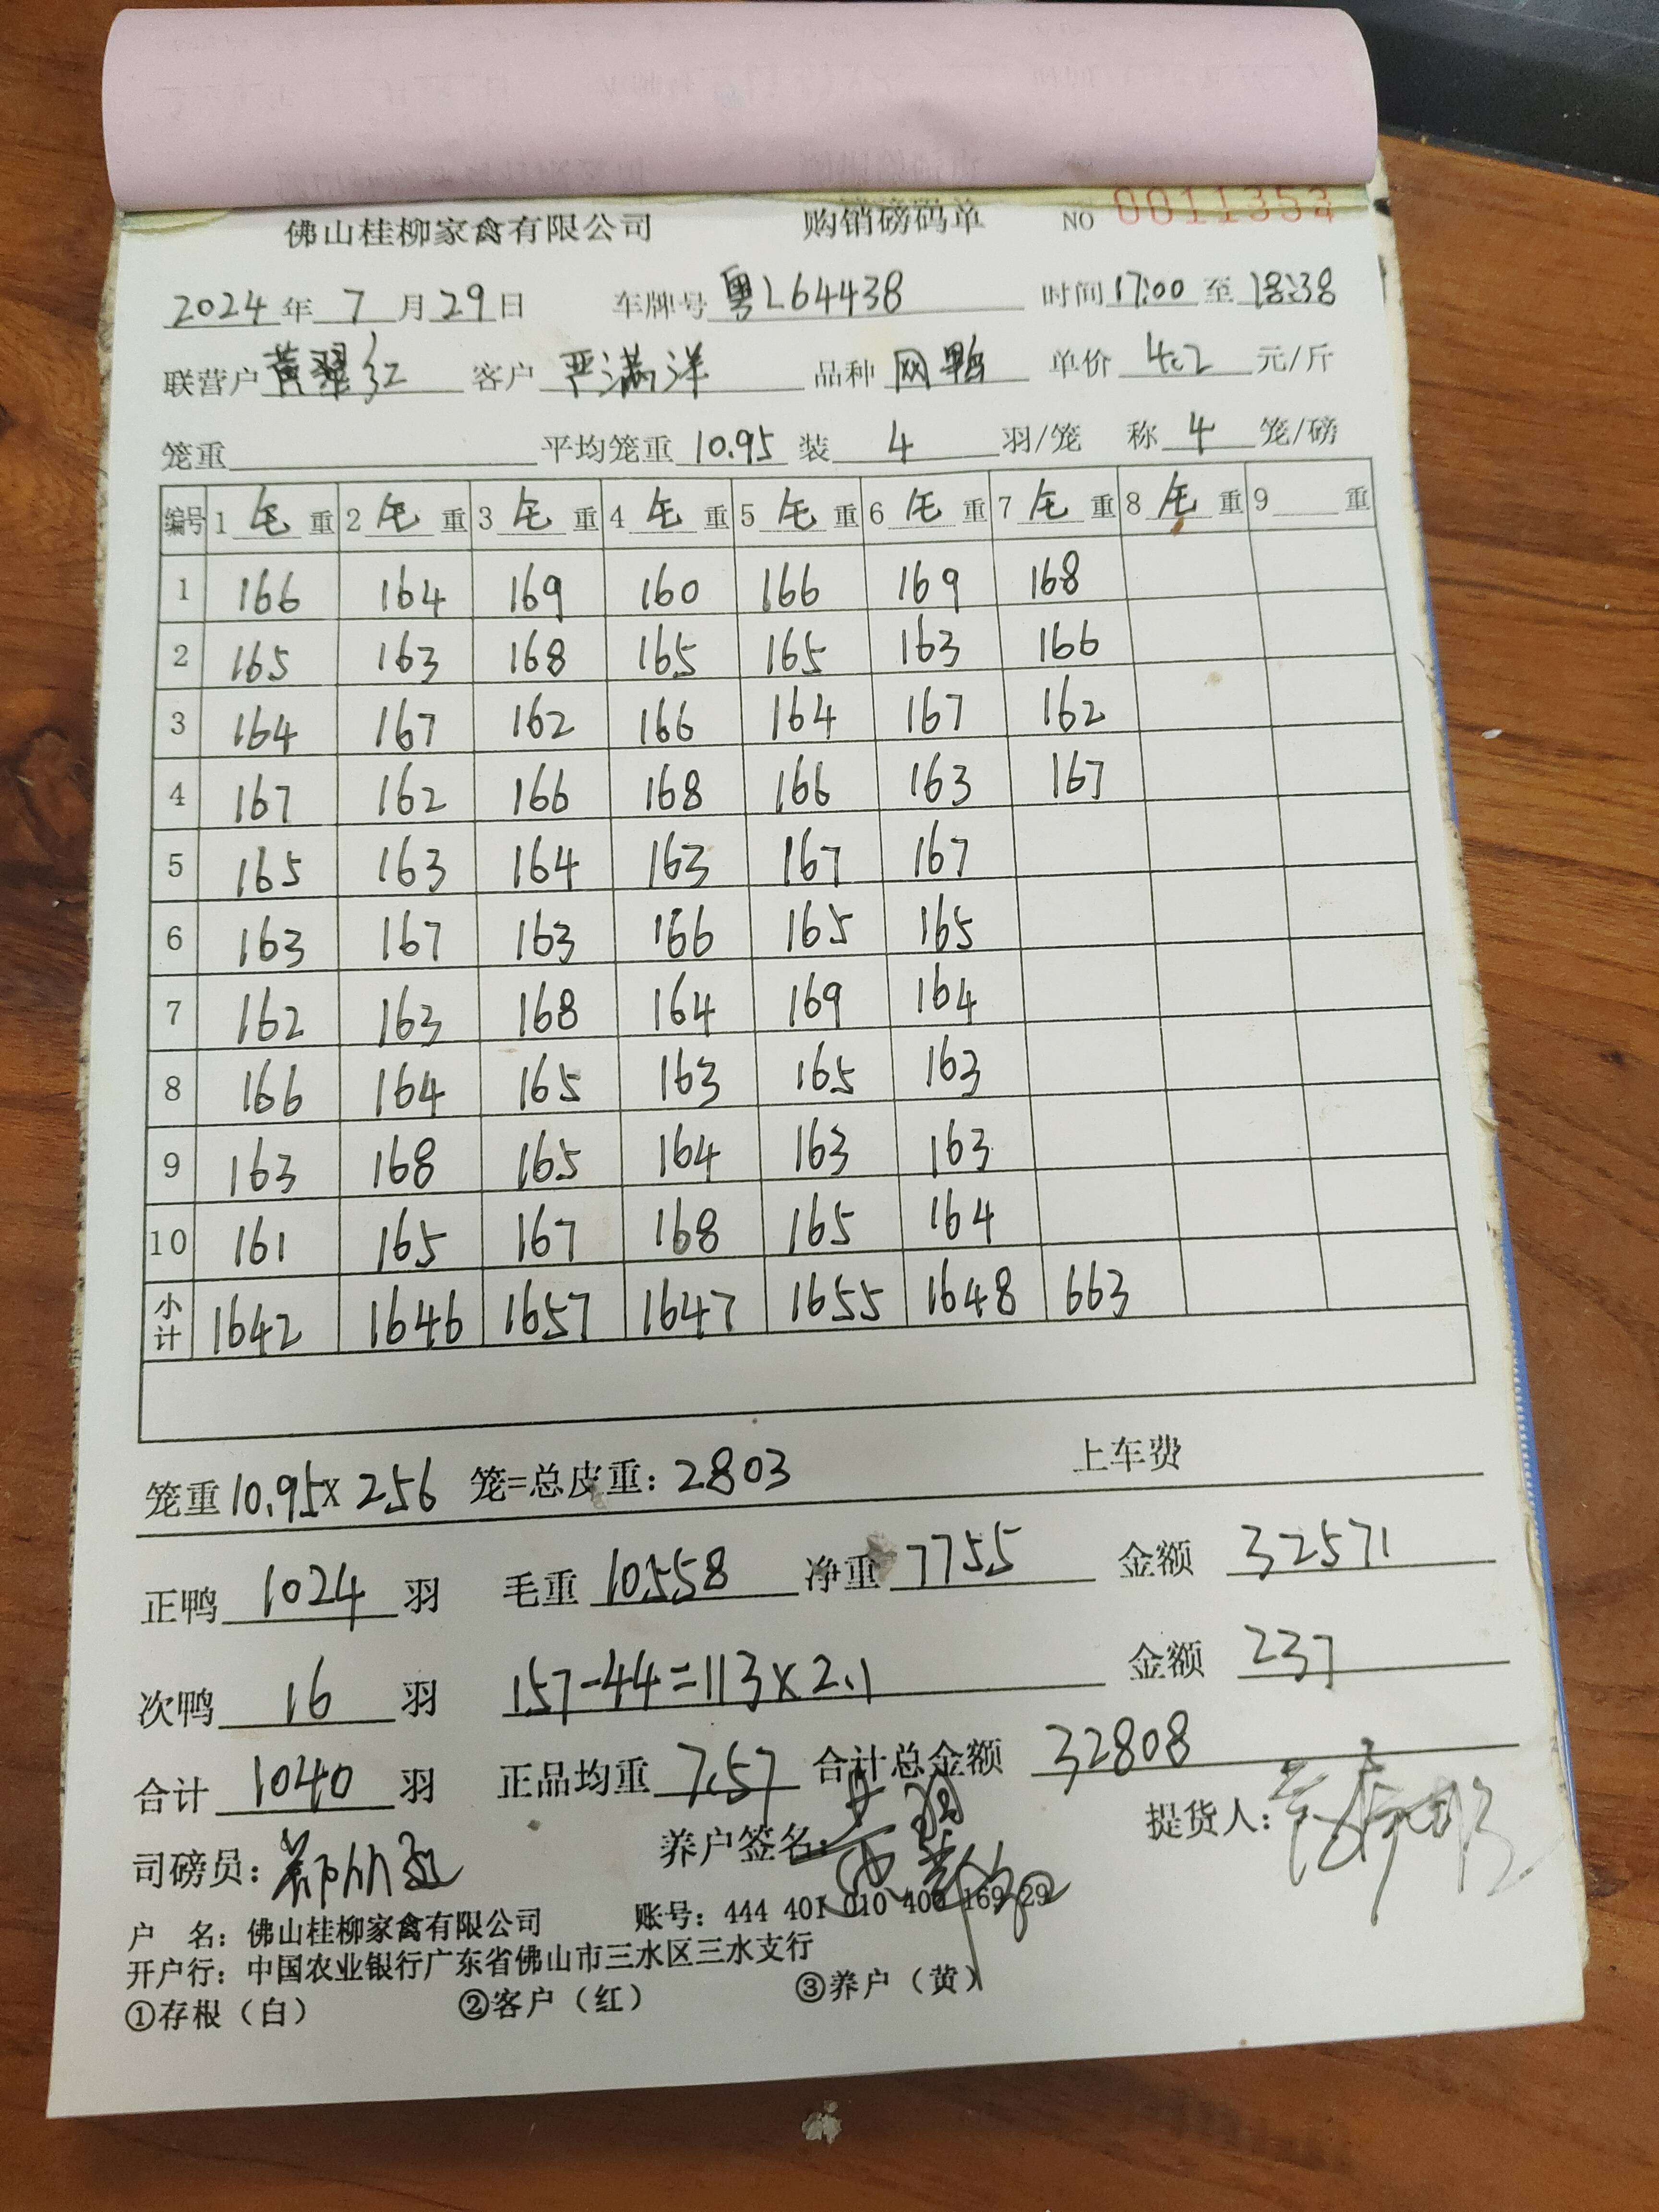 佛山桂柳家禽有限公司 购销磅码单 NO 0011354
2024年7月29日 车牌号粤L64438 时间17:00至18:38
联营户黄翠红 客户严满洋 品种网鸭 单价4.2元/斤
笼重 平均笼重10.95装4羽/笼 称4笼/磅
编号 1毛重 2毛重 3毛重 4毛重 5毛重 6毛重 7毛重 8毛重 9重
1 166 164 169 160 166 169 168
2 165 163 168 165 165 163 166
3 164 167 162 166 164 167 162
4 167 162 166 168 166 163 167
5 165 163 164 163 167 167
6 163 167 163 166 165 165
7 162 163 168 164 169 164
8 166 164 165 163 165 163
9 163 168 165 164 163 163
10 161 165 167 168 165 164
小计 1642 1646 1657 1647 1655 1648 663
笼重10.95×256笼=总皮重:2803 上车费
正鸭1024羽 毛重10558净重7755 金额32571
次鸭16羽 157-44=113×2.1 金额237
合计1040羽 正品均重7.57合计总金额32808
司磅员: 养户签名: 提货人:
户 名:佛山桂柳家禽有限公司 账号:444 401 010 400 169 29
开户行:中国农业银行广东省佛山市三水区三水支行
①存根(白) ②客户(红) ③养户(黄)